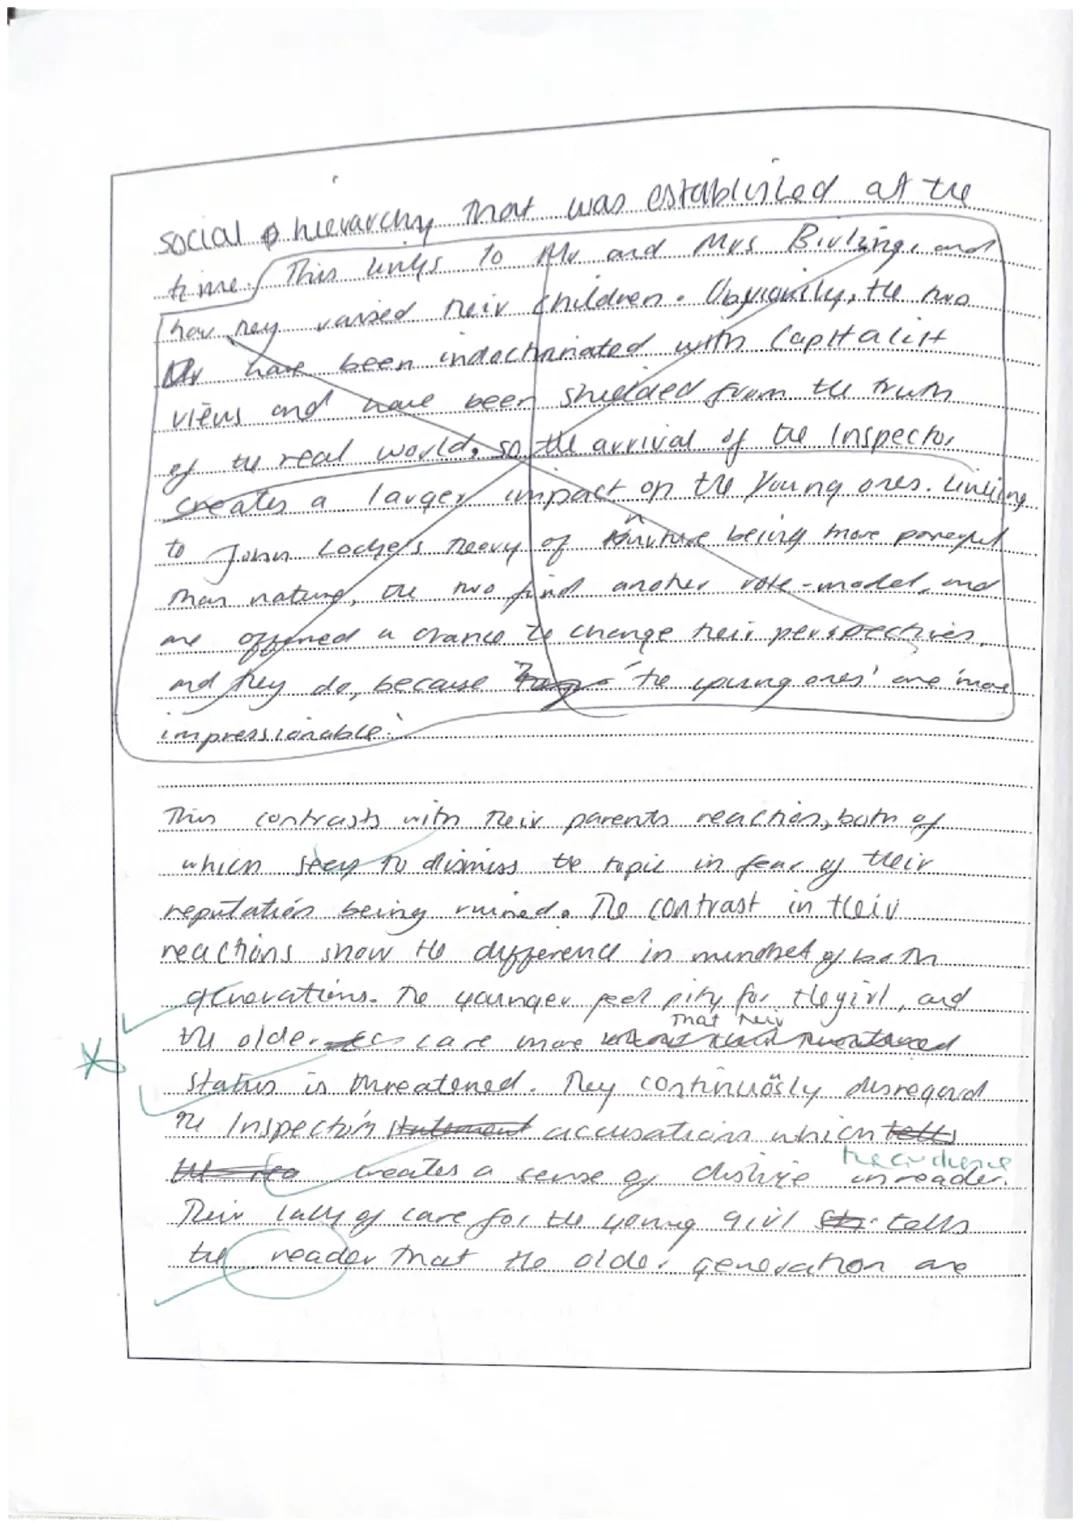 social hierarchy that was established at the
time. This links to Mr and Mrs Birling, and
how they raised their children. Obviously, the two
have been indoctrinated with Capitalist
views and have been shielded from the truth
of the real world, so the arrival of the Inspector
creates a larger impact on the Young ones. Linking
to John Locke's theory of nurture being more powerful
than nature, the two find another role-model, and
are offered a chance to change their perspectives,
and they do, because 'the young ones' are 'more
impressionable'.
This contrasts with their parents reaction, both of
which seek to dismiss the topic in fear of their
reputation being ruined. The contrast in their
reactions show the difference in mindset of both
generations. The younger feel pity for the girl, and
that their
the older care more threatened
status is threatened. They continuosly disregard
the Inspectors statement accusations which tells
the audience
creates a sense of dislike in reader.
Their lack of care for the young girl tells
the reader that the older generation are